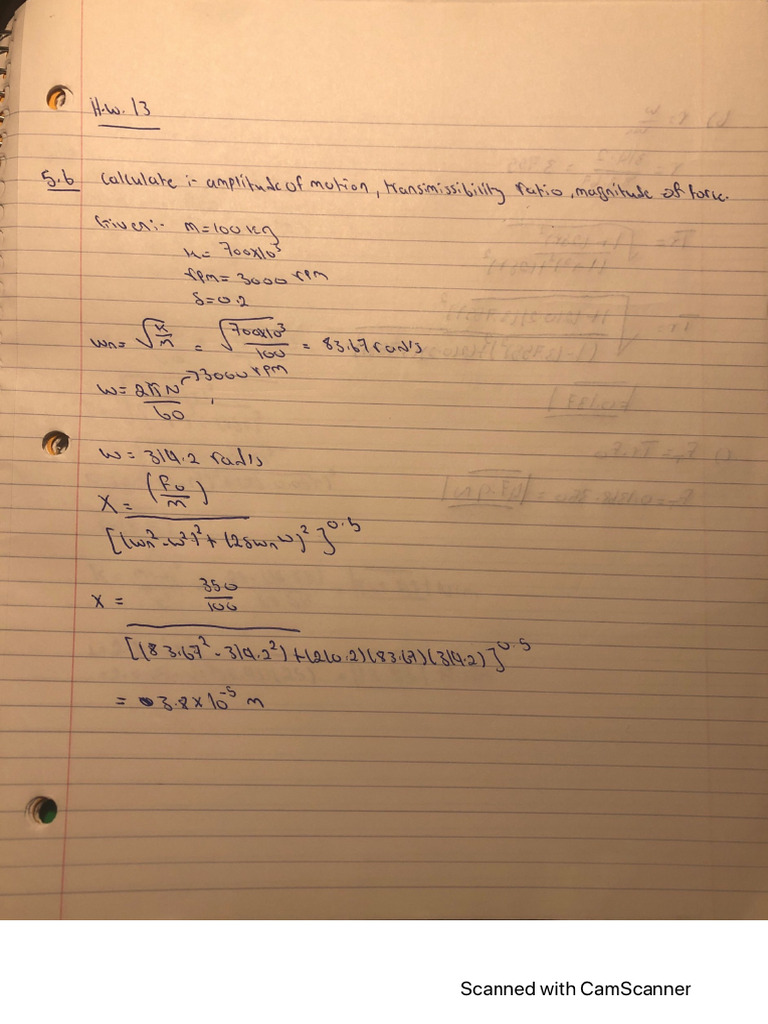 H.W. 13
5.6 Calculate :- amplitude of motion, transimissibility ratio, magnitude of force.
Given:- m=100 kg
k= 700x10³
rpm= 3000 rpm
δ=0.2
wn= √(k/m) = √(700x10³/100) = 83.67 rad/s
w= 2πN/60 → 3000 rpm
w= 314.2 rad/s
X= (F0/m)
[(wn²-w²)²+(2δwn w)²]^0.5
X= 350/100
[(83.67²-314.2²)+(2(0.2)(83.67)(314.2)]^0.5
= 3.8x10^-5 m
Scanned with CamScanner